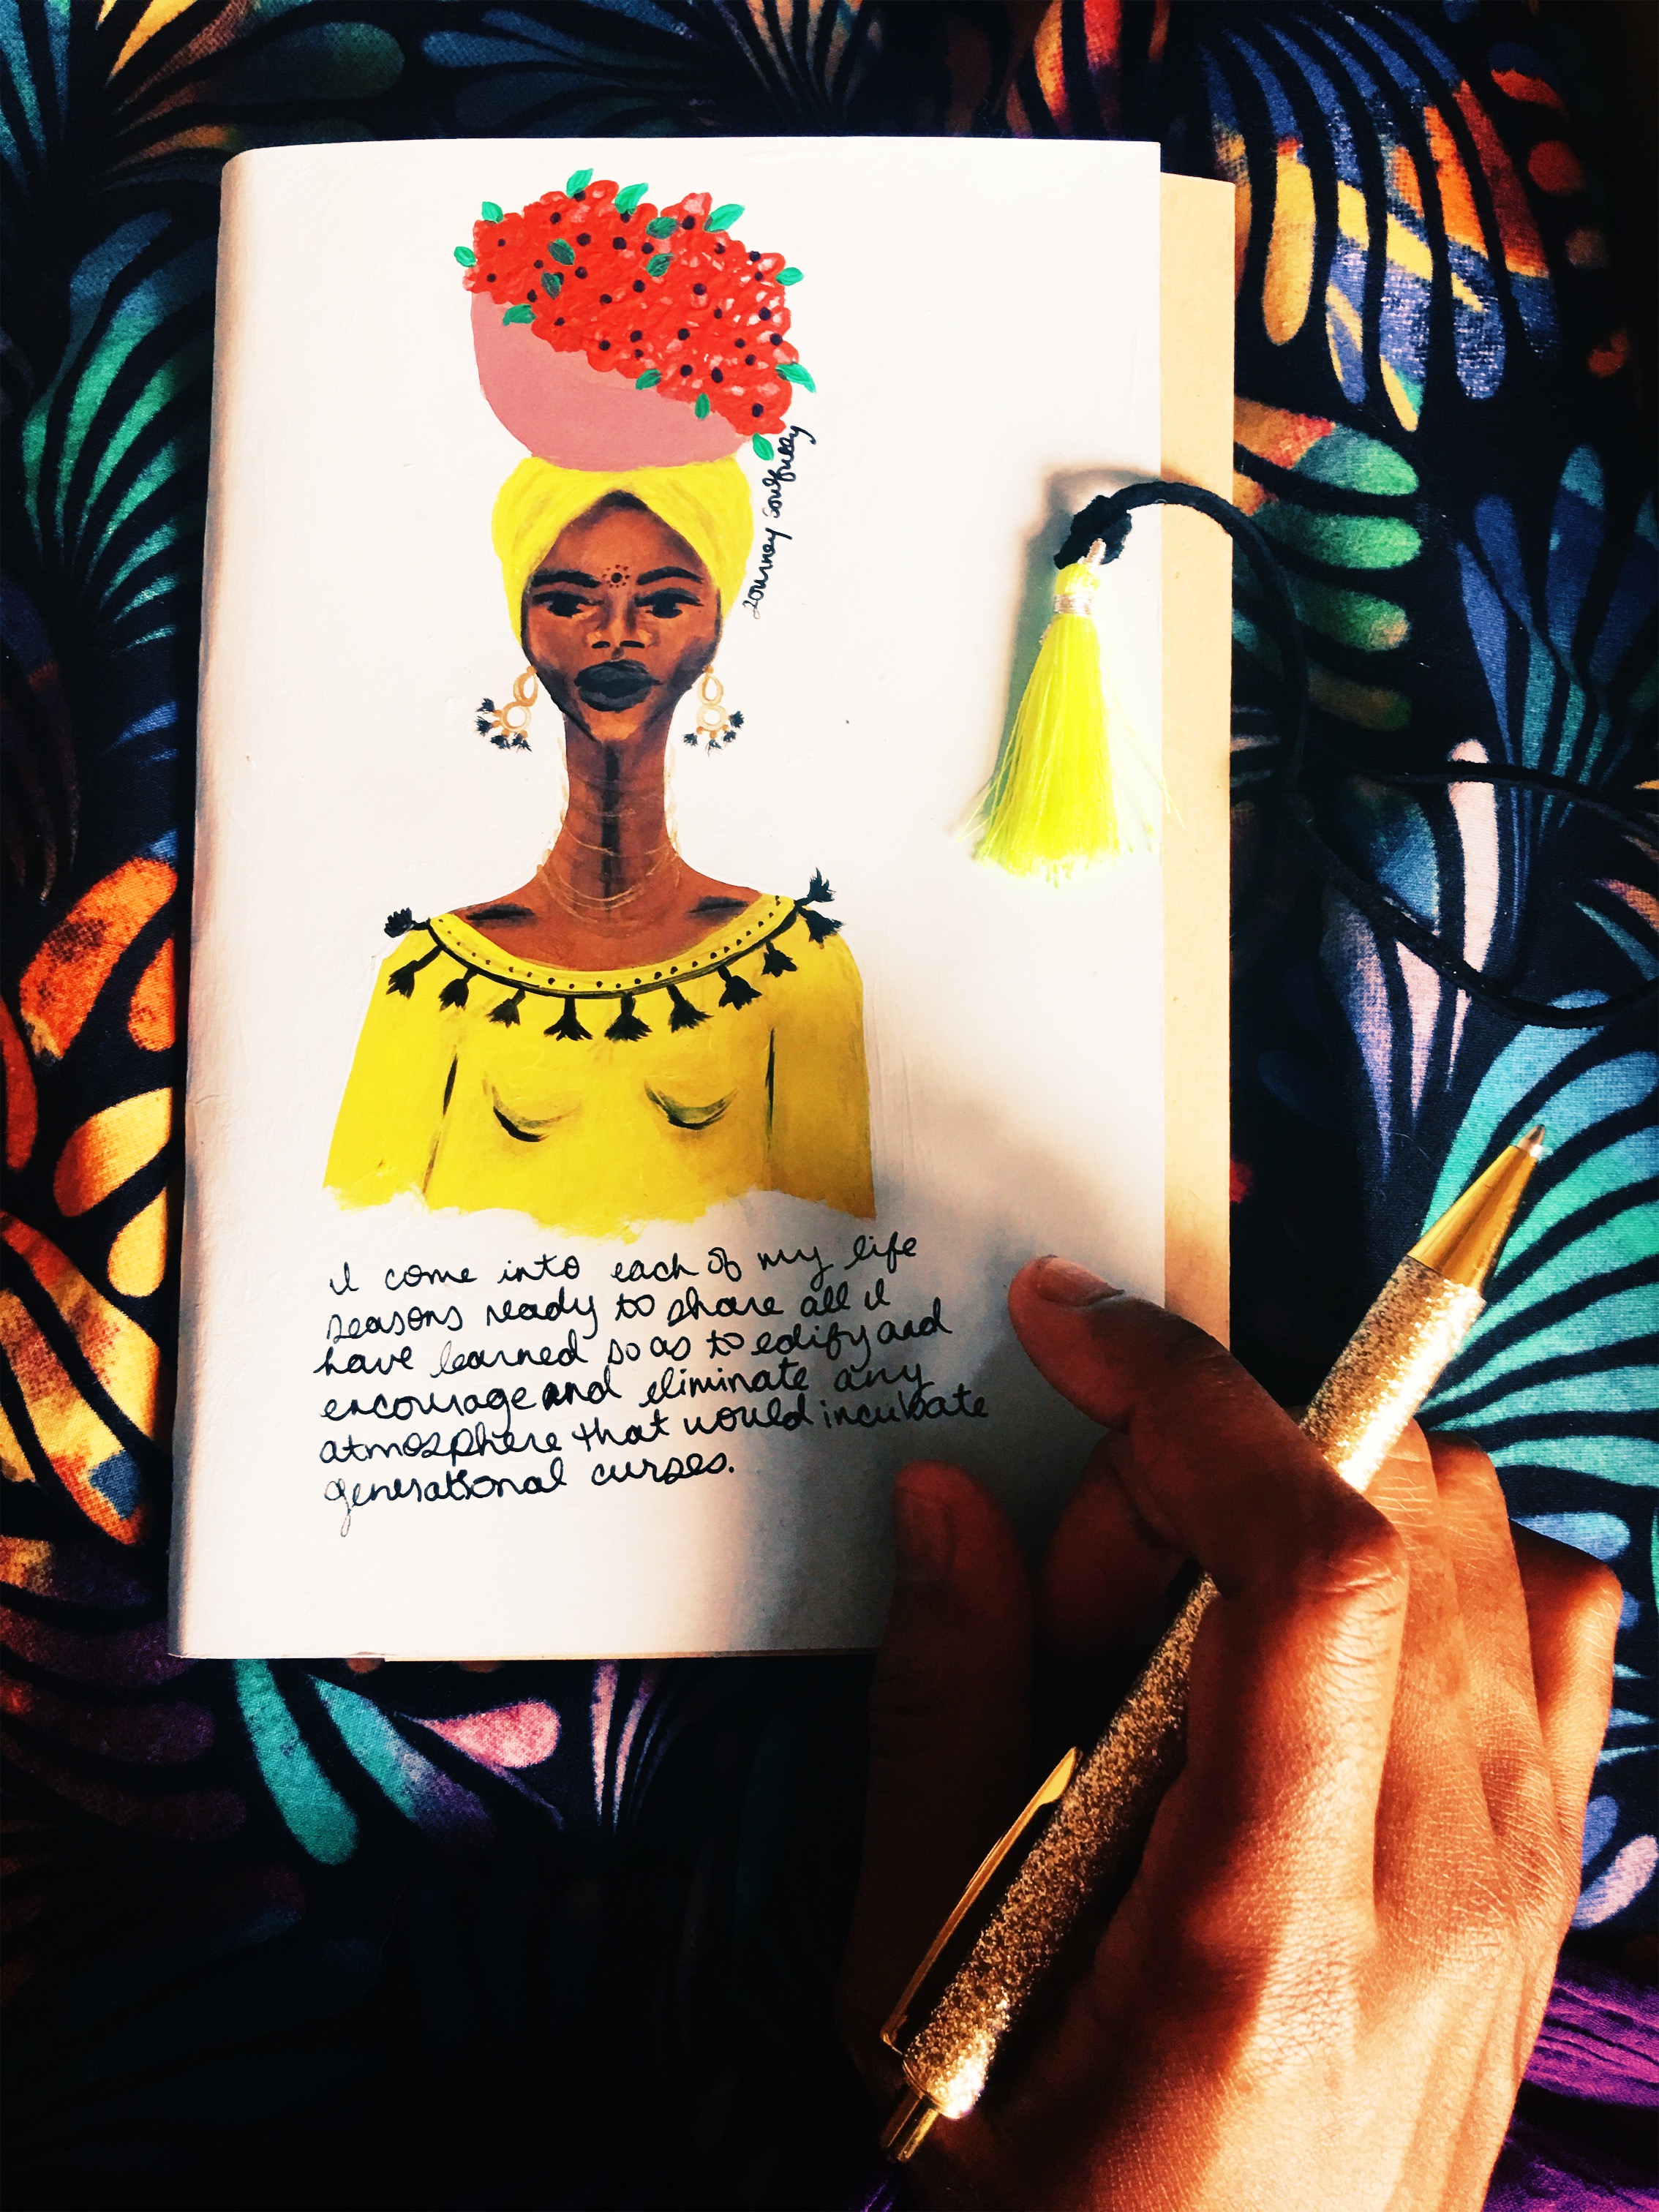 Journey Soulfully
I come into each of my life
seasons ready to share all I
have learned so as to edify and
encourage and eliminate any
atmosphere that would incubate
generational curses.